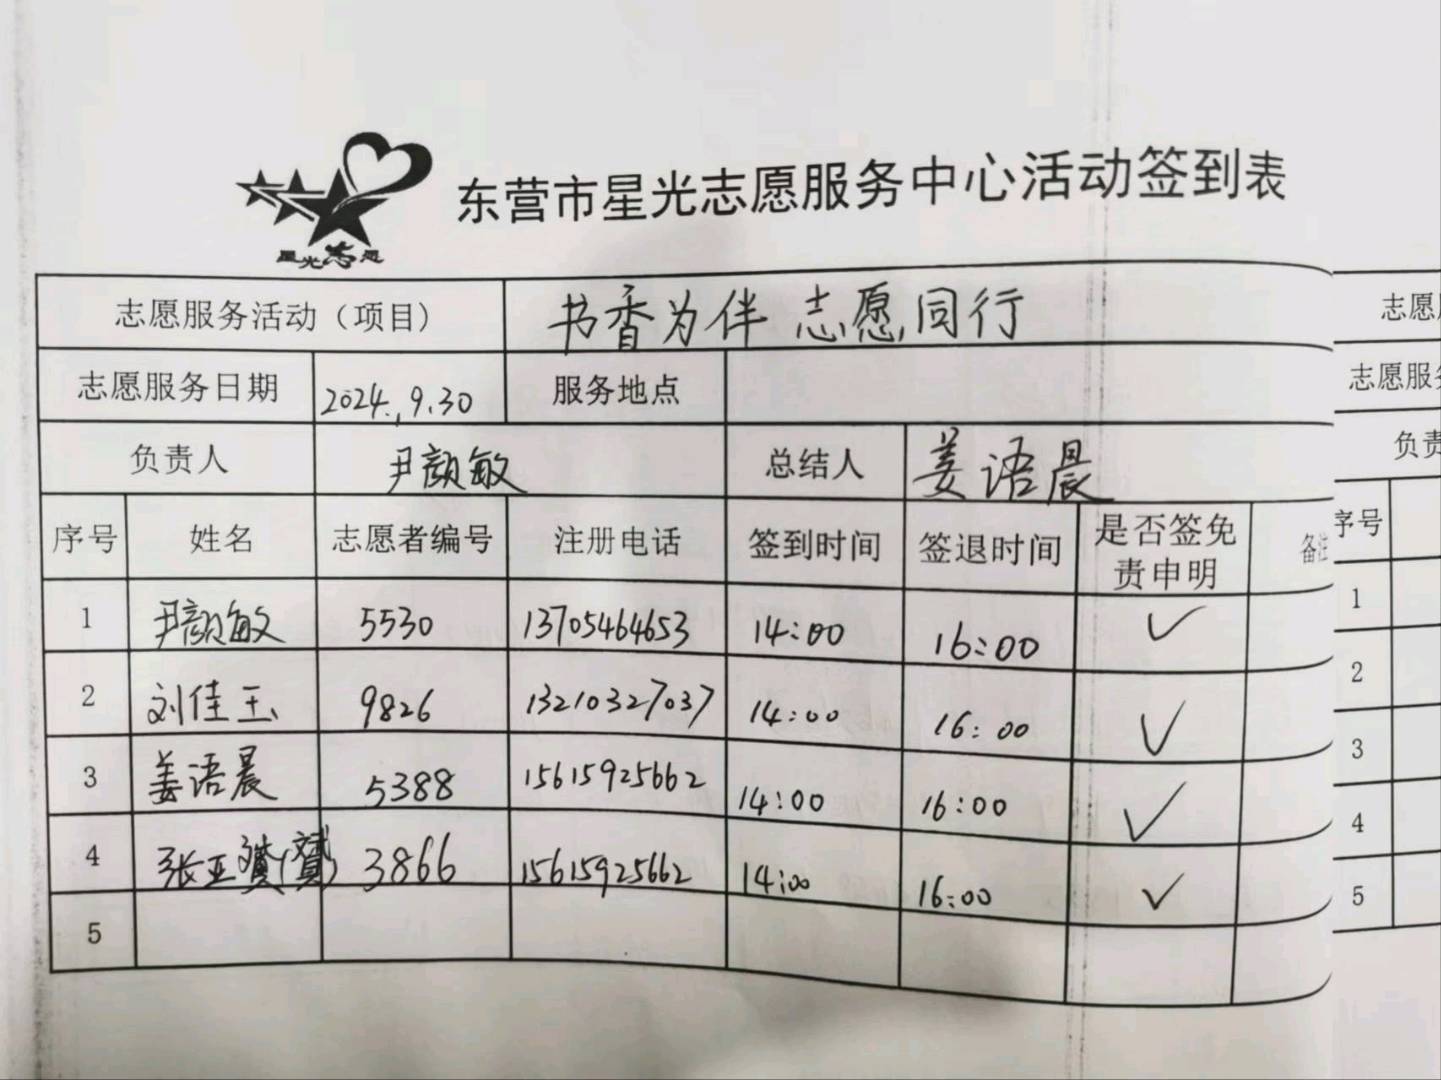 星光志愿
东营市星光志愿服务中心活动签到表
志愿服务活动（项目） 书香为伴 志愿同行
志愿服务日期 2024.9.30 服务地点
负责人 尹颜敏 总结人 姜语晨
序号 姓名 志愿者编号 注册电话 签到时间 签退时间 是否签免责申明 备注
1 尹颜敏 5530 13705464653 14:00 16:00 ✓
2 刘佳玉 9826 13210327037 14:00 16:00 ✓
3 姜语晨 5388 15615925662 14:00 16:00 ✓
4 张亚 3866 15615925662 14:00 16:00 ✓
5
志愿
志愿服
负责
序号
1
2
3
4
5